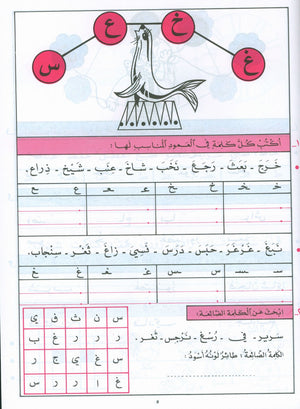 س ع خ غ
أكتب كل كلمة في العمود المناسب لها :
خرج - بعث - رجع - نخب - شاخ - عنب - شيخ - ذراع.
خ خ ع ع
نبغ - غرغر - حبس - درس - نسي - زاغ - ثغر - سنجاب.
سـ ـسـ س غـ ـغـ غ غ
ابحث عن الكلمة الضائعة :
سرير - في - رسغ - نرجس - ثغر.
الكلمة الضائعة : طائر لونه أسود :
س ن ث ف ي
ر ر ر غ ب
س غ ي ج ر
غ ا ر ر س